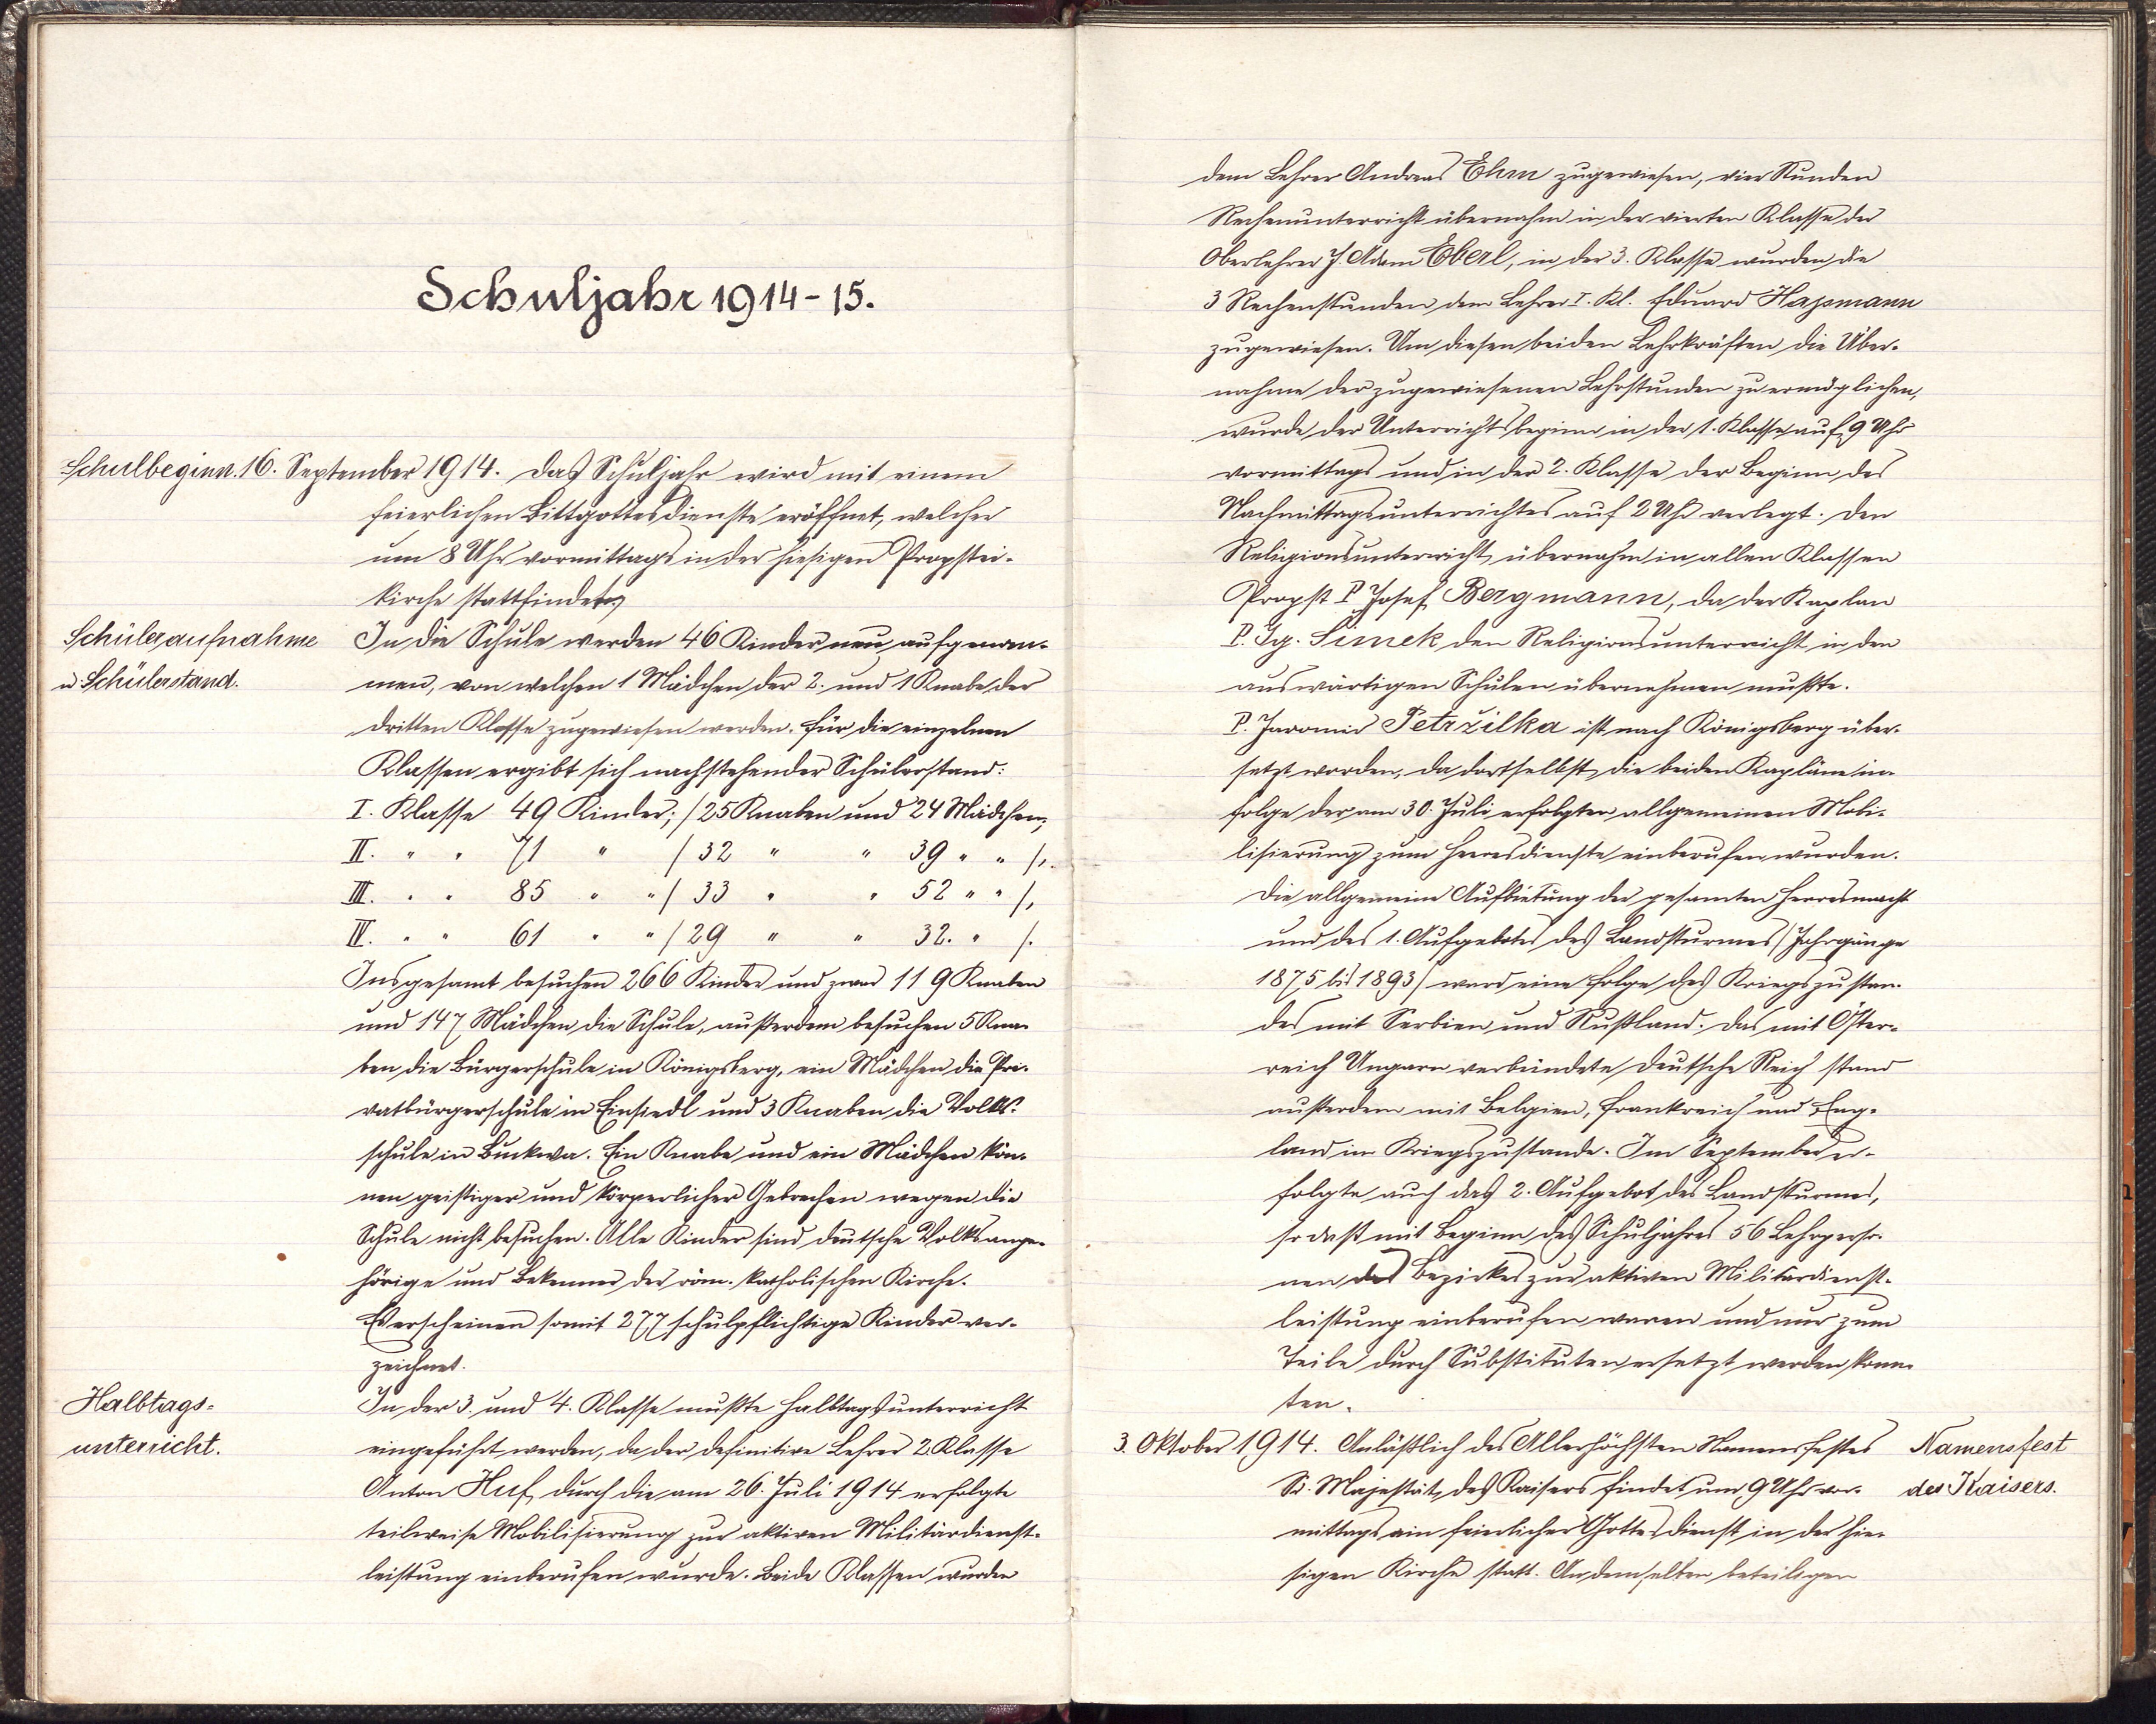 Schuljahr 1914-15.
Schulbeginn. 16. September 1914. Das Schuljahr wird mit einem
feierlichen Bittgottesdienste eröffnet, welcher
um 8 Uhr vormittags in der hiesigen Propstei-
kirche stattfindet.
Schüleraufnahme In die Schule werden 46 Kinder neu aufgenom-
u. Schülerstand. men, von welchen 1 Mädchen der 2. und 1 Knabe der
dritten Klasse zugewiesen werden. Für die einzelnen
Klassen ergibt sich nachstehender Schülerstand:
I. Klasse 49 Kinder; /25 Knaben und 24 Mädchen,
II. " " 71 " /32 " " 39 " " /,
III. " " 85 " " /33 " " 52 " " /,
IV. " " 61 " " /29 " " 32. " /.
Insgesamt besuchen 266 Kinder und zwar 119 Knaben
und 147 Mädchen die Schule, außerdem besuchen 5 Kna-
ben die Bürgerschule in Königsberg, ein Mädchen die Pri-
vatbürgerschule in Einsiedl und 3 Knaben die Volks-
schule in Buckwa. Ein Knabe und ein Mädchen kön-
nen geistiger und körperlicher Gebrechen wegen die
Schule nicht besuchen. Alle Kinder sind deutsche Volksange-
hörige und Bekenner der röm. katholischen Kirche.
Es erscheinen somit 277 schulpflichtige Kinder ver-
zeichnet.
Halbtags- In der 3. und 4. Klasse mußte Halbtagsunterricht
unterricht. eingeführt werden, da der definitive Lehrer 2. Klasse
Anton Huf durch die am 26. Juli 1914 erfolgte
teilweise Mobilisierung zur aktiven Militärdienst-
leistung einberufen wurde. Beide Klassen wurden
dem Lehrer Andreas Ehm zugewiesen, vier Stunden
Rechenunterricht übernahm in der vierten Klasse der
Oberlehrer J. Adam Eberl, in der 3. Klasse wurden die
3 Rechenstunden dem Lehrer I. Kl. Eduard Hajsmann
zugewiesen. Um diesen beiden Lehrkräften die Über-
nahme der zugewiesenen Lehrstunden zu ermöglichen,
wurde der Unterrichtsbeginn in der 1. Klasse auf 9 Uhr
vormittags und in der 2. Klasse der Beginn des
Nachmittagsunterrichtes auf 2 Uhr verlegt. Den
Religionsunterricht übernahm in allen Klassen
Propst P. Josef Bergmann, da der Kaplan
P. Ig. Šimek den Religionsunterricht in den
auswärtigen Schulen übernehmen mußte.
P. Jaromir Petržilka ist nach Königsberg über-
setzt worden, da dortselbst die beiden Kapläne in-
folge der am 30. Juli erfolgten allgemeinen Mobi-
lisierung zum Heeresdienste einberufen wurden.
Die allgemeine Aufbietung der gesamten Heeresmacht
und des 1. Aufgebotes des Landsturmes /Jahrgänge
1875 bis 1893/ ward eine Folge des Kriegszustan-
des mit Serbien und Rußland. Das mit Öster-
reich Ungarn verbündete Deutsche Reich stand
außerdem mit Belgien, Frankreich und Eng-
land im Kriegszustande. Im September er-
folgte auch das 2. Aufgebot des Landsturmes,
so daß mit Beginn des Schuljahres 56 Lehrperso-
nen des Bezirkes zur aktiven Militärdienst-
leistung einberufen waren und nur zum
Teile durch Substituten ersetzt werden konn-
ten.
3. Oktober 1914. Anläßlich des Allerhöchsten Namensfestes Namensfest
Sr. Majestät des Kaisers findet um 9 Uhr vor- des Kaisers.
mittags ein feierlicher Gottesdienst in der hie-
sigen Kirche statt. An demselben beteiligen